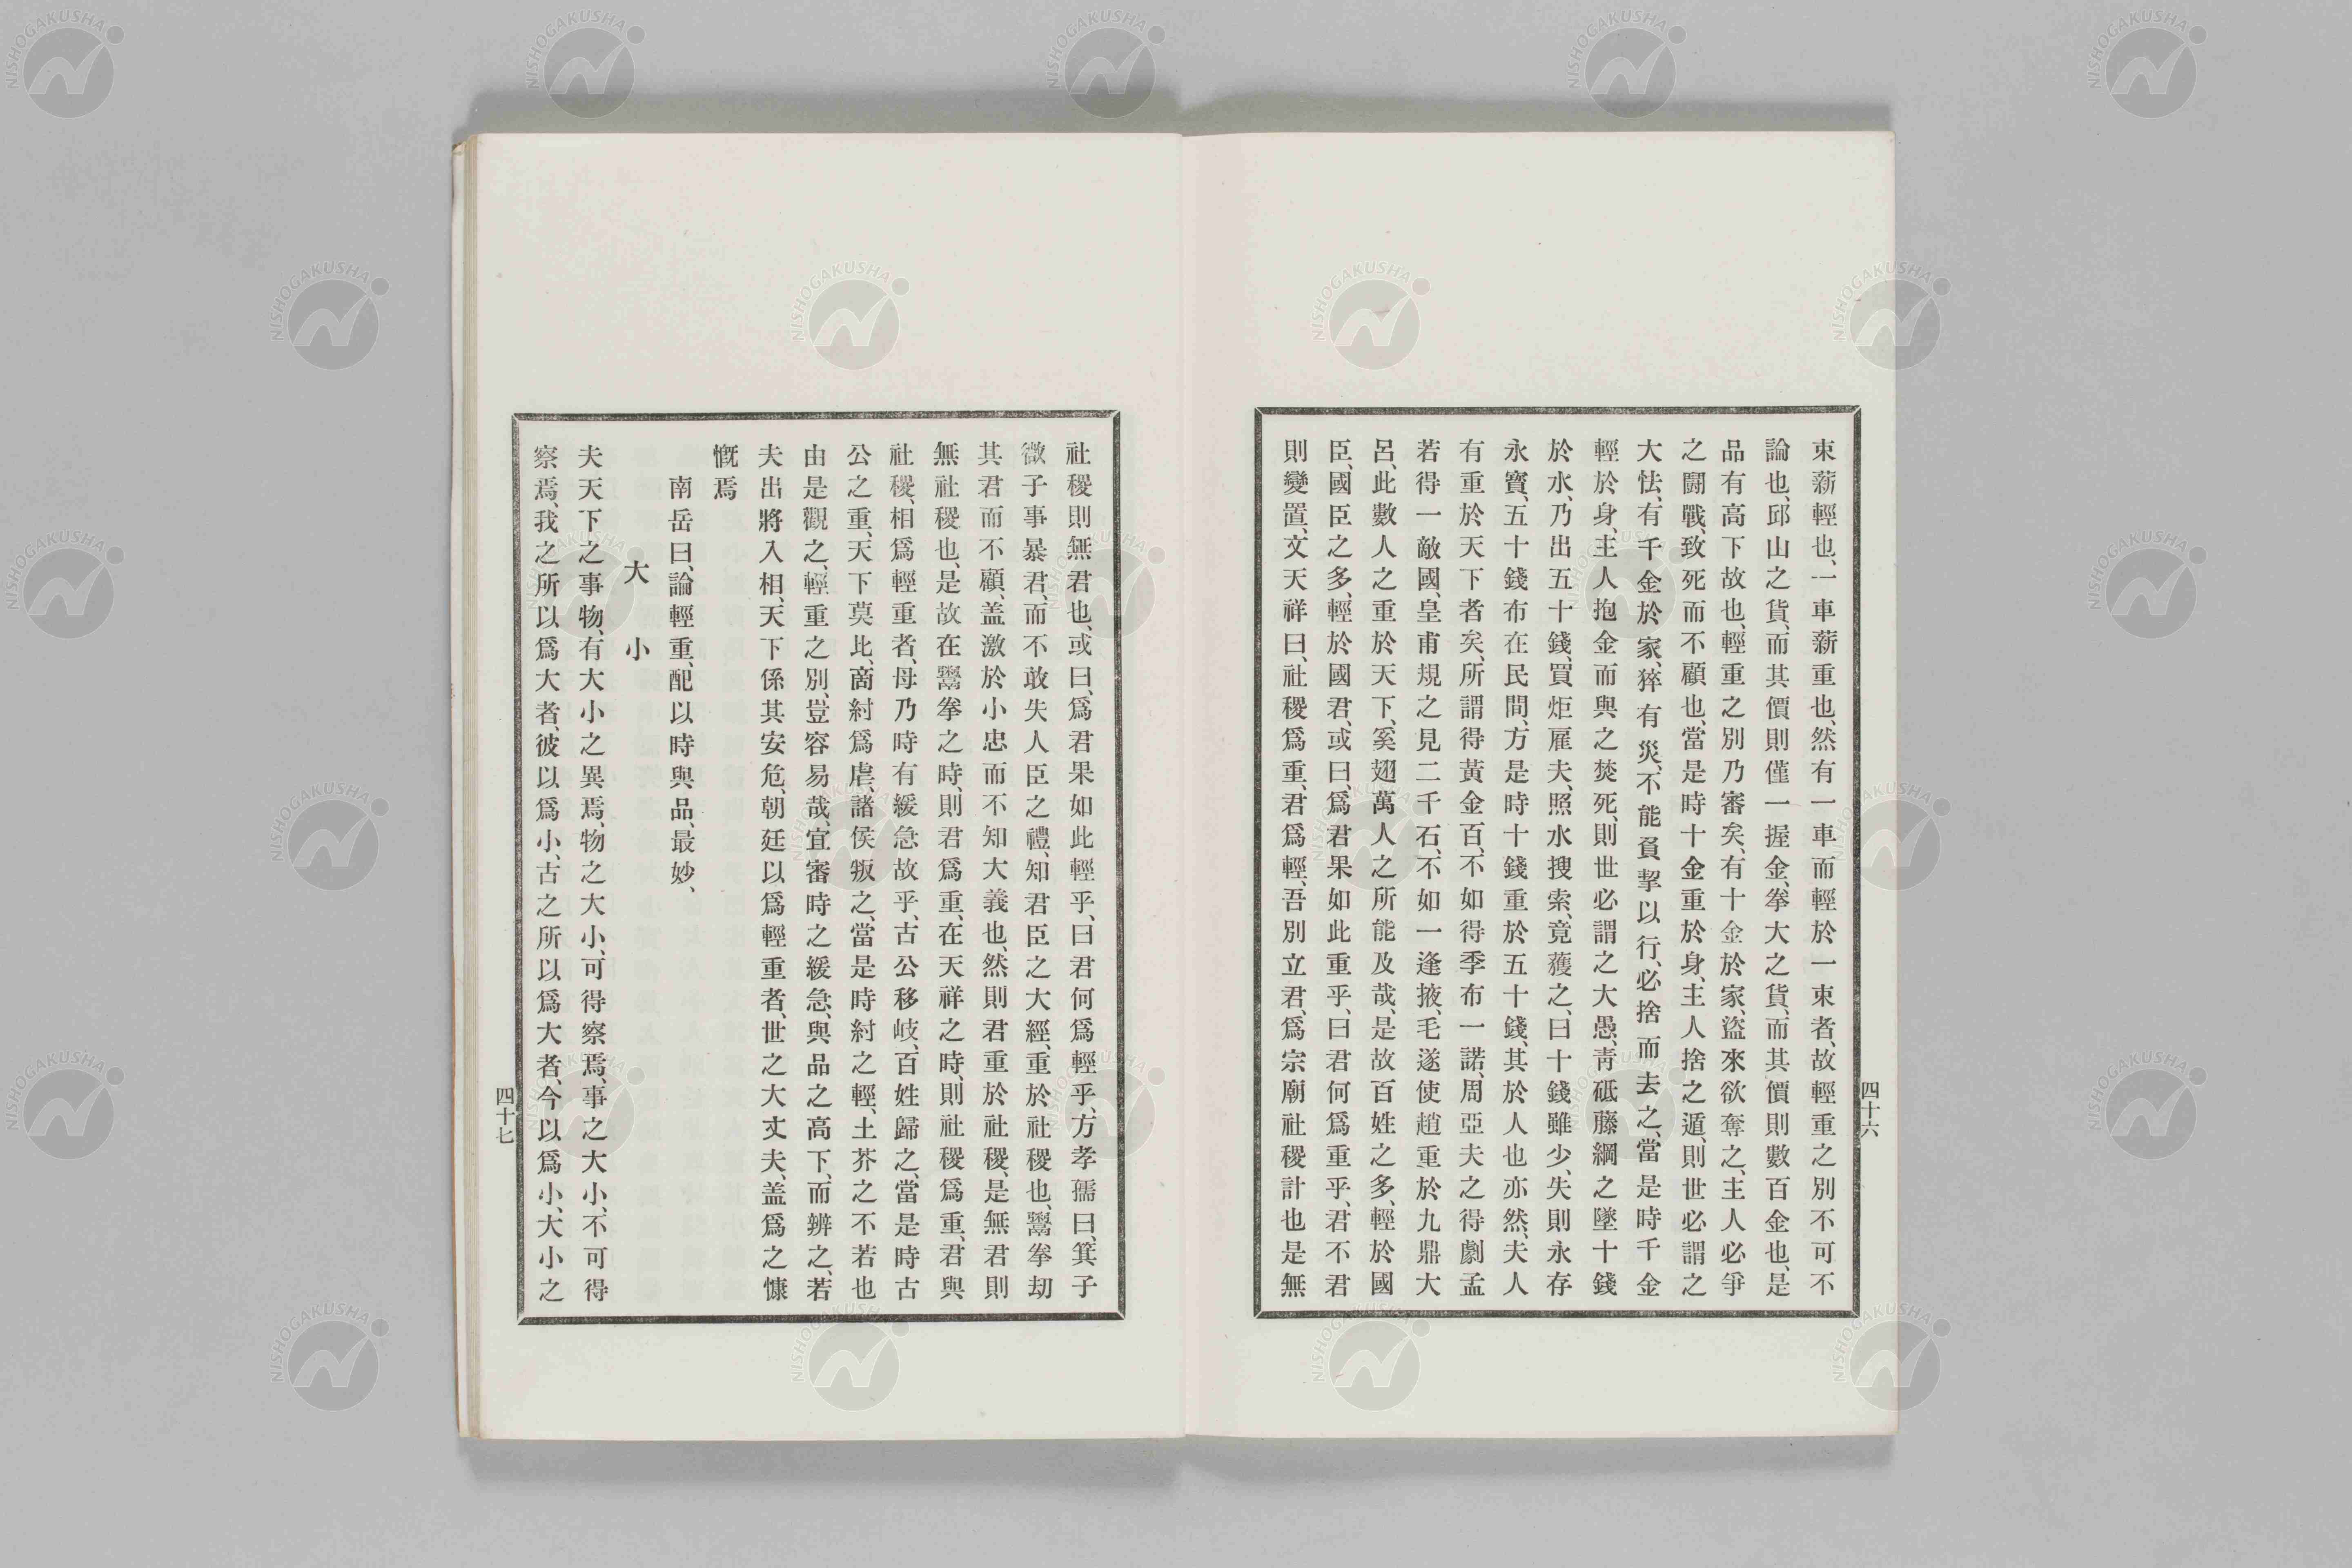 四十六
束薪輕也、一車薪重也、然有一車而輕於一束者、故輕重之別不可不
論也、邱山之貨、而其價則僅一握金、拳大之貨、而其價則數百金也、是
品有高下故也、輕重之別乃審矣、有十金於家、盜來欲奪之、主人必爭
之鬪戰、致死而不顧也、當是時十金重於身、主人捨之遁、則世必謂之
大怯、有千金於家、猝有災、不能負挈以行、必捨而去之、當是時千金
輕於身、主人抱金而與之焚死、則世必謂之大愚、靑砥藤綱之墜十錢
於水、乃出五十錢、買炬雇夫、照水搜索、竟獲之、曰十錢雖少、失則永存
永寳、五十錢布在民間、方是時十錢重於五十錢、其於人也亦然、夫人
有重於天下者矣、所謂得黃金百、不如得季布一諾、周亞夫之得劇孟
若得一敵國、皇甫規之見二千石、不如一逢掖、毛遂使趙重於九鼎大
呂、此數人之重於天下、奚翅萬人之所能及哉、是故百姓之多、輕於國
臣、國臣之多、輕於國君、或曰、爲君果如此重乎、曰君何爲重乎、君不君
則變置、文天祥曰、社稷爲重、君爲輕、吾別立君、爲宗廟社稷計也是無
社稷則無君也、或曰、爲君果如此輕乎、曰君何爲輕乎、方孝孺曰、箕子
微子事暴君、而不敢失人臣之禮、知君臣之大經、重於社稷也、鬻拳刧
其君而不顧、盖激於小忠而不知大義也、然則君重於社稷、是無君則
無社稷也、是故在鬻拳之時、則君爲重、在天祥之時、則社稷爲重、君與
社稷、相爲輕重者、母乃時有緩急故乎、古公移岐、百姓歸之、當是時古
公之重、天下莫比、商紂爲虐、諸侯叛之、當是時紂之輕、土芥之不若也
由是觀之、輕重之別、豈容易哉、宜審時之緩急、與品之高下、而辨之、若
夫出將入相、天下係其安危、朝廷以爲輕重者、世之大丈夫、盖爲之慷
慨焉
南岳曰、論輕重、配以時與品、最妙、
大小
夫天下之事物、有大小之異焉、物之大小、可得察焉、事之大小、不可得
察焉、我之所以爲大者、彼以爲小、古之所以爲大者、今以爲小、大小之
四十七